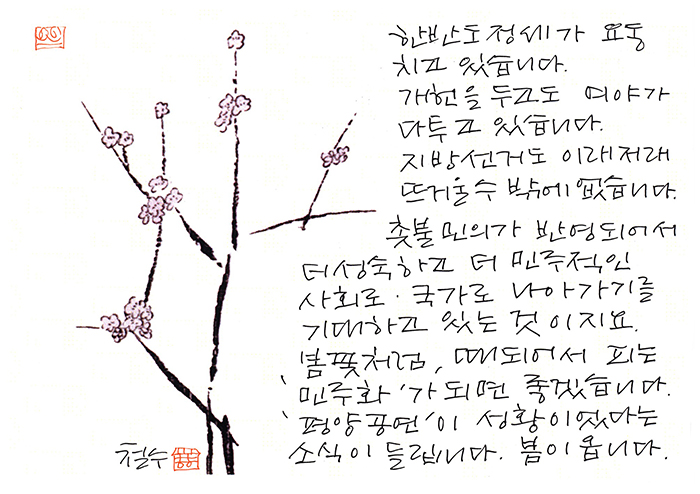 한반도정세가 요동
치고 있습니다.
개헌을 두고도 여야가
다투고 있습니다.
지방선거도 이래저래
뜨거울수 밖에 없습니다.
촛불 민의가 반영되어서
더성숙하고 더 민주적인
사회로·국가로 나아가기를
기대하고 있는 것이지요.
봄꽃처럼, 때되어서 피는
'민주화'가 되면 좋겠습니다.
'평양공연'이 성황이었다는
소식이 들립니다. 봄이 옵니다.
철수